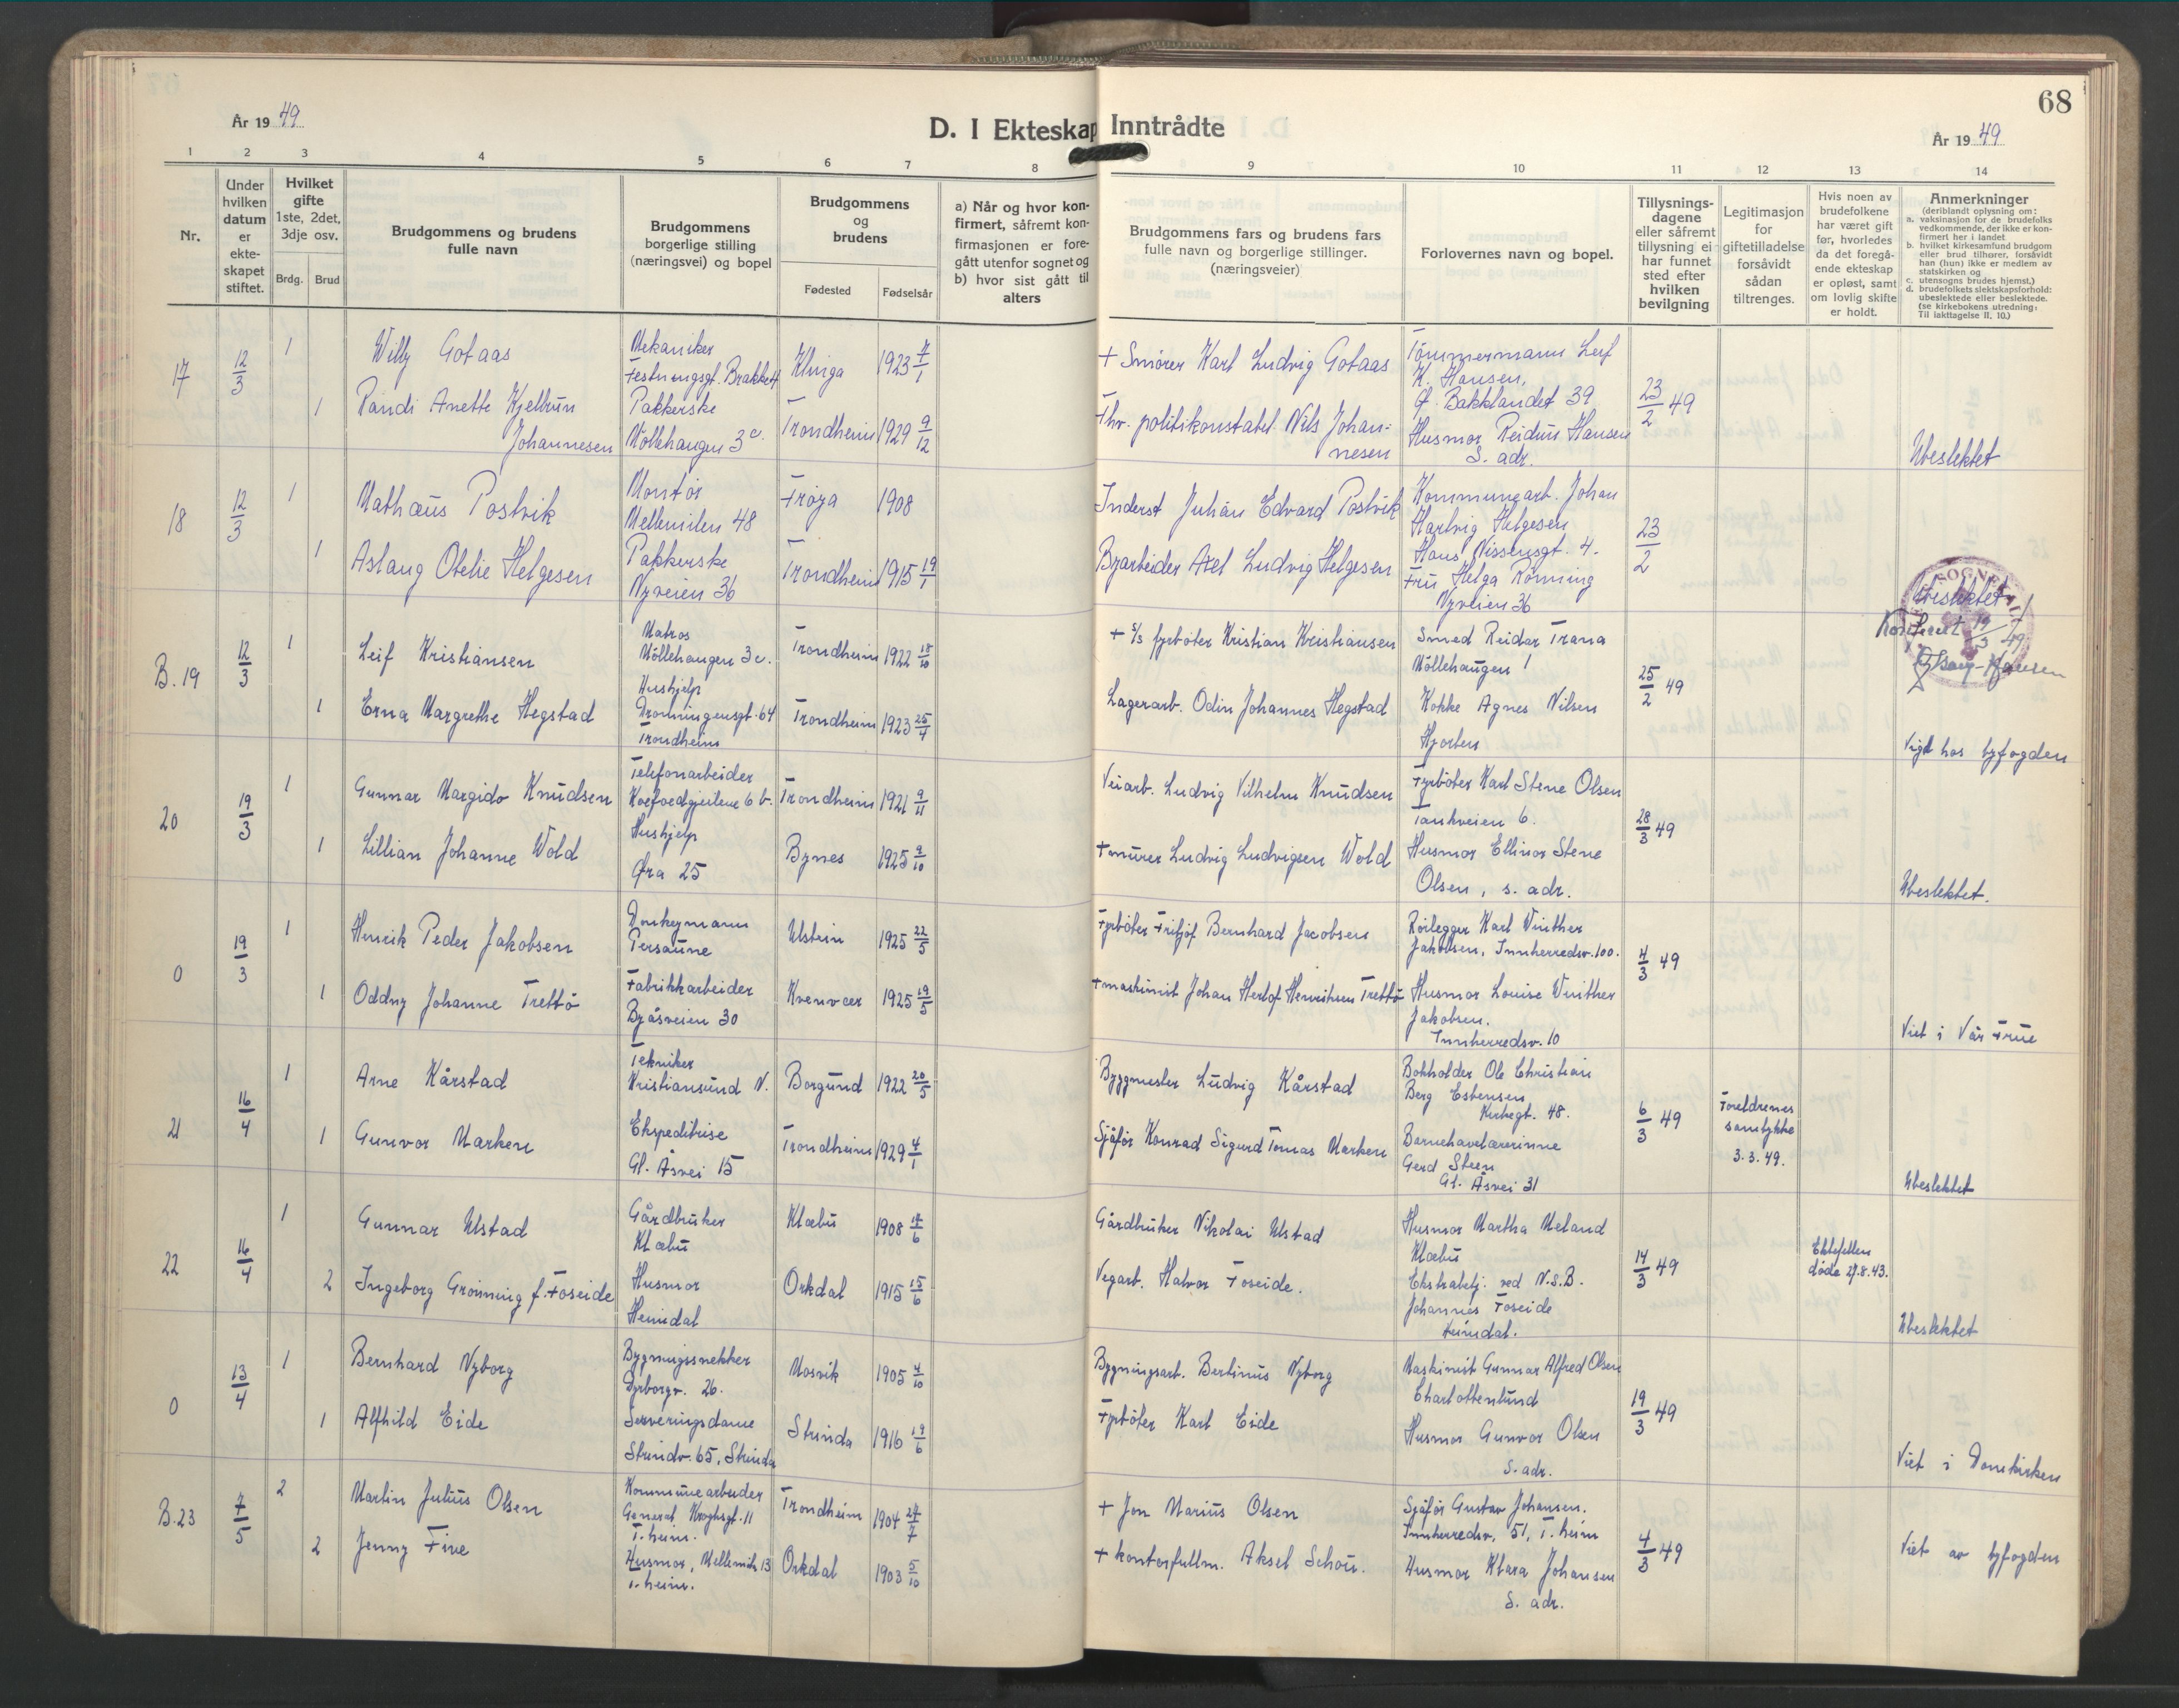 68
År 1949
D. I Ekteskap Inntrådte
År 1949
1 2 3 4 5 6 7 8 9 10 11 12 13 14
Nr.
Under hvilken datum er ekte-skapet stiftet.
Hvilket gifte 1ste, 2det, 3dje osv.
Brdg. Brud
Brudgommens og brudens fulle navn
Brudgommens borgerlige stilling (næringsvei) og bopel
Brudgommens og brudens
Fødested Fødselsår
a) Når og hvor kon-firmert, såfremt kon-firmasjonen er fore-gått utenfor sognet og
b) hvor sist gått til alters
Brudgommens fars og brudens fars fulle navn og borgerlige stillinger. (næringsveier)
Forlovernes navn og bopel.
Tillysnings-dagene eller såfremt tillysning ei har funnet sted efter hvilken bevilgning
Legitimasjon for giftetilladelse forsåvidt sådan tiltrenges.
Hvis noen av brudefolkene har været gift før, hvorledes da det foregå-ende ekteskap er opløst, samt om lovlig skifte er holdt.
Anmerkninger
(deriblandt oplysning om:
a. vaksinasjon for de brudefolks vedkommende, der ikke er kon-firmert her i landet
b. hvilket kirkesamfund brudgom eller brud tilhører, forsåvidt han (hun) ikke er medlem av statskirken og
c. utensogns brudes hjemst.)
d. brudefolkets slektskapsforhold: ubeslektede eller beslektede.
(se kirkebokens utredning: Til iakttagelse II. 10.)
17 12/3 1 Willy Gotaas Mekaniker Klinga 1923 7/1 + Smører Karl Ludvig Gotaas Tømmermann Leif
Festningsgt. Brakke 4 K. Hansen,
1 Randi Anette Kjellrun Pakkerske Trondheim 1929 9/12 Fhv. politikonstabel Nils Johan- Ø. Bakklandet 39 23/2 49
Johannesen Møllehaugen 3c. nesen Husmor Reidun Hansen
S. adr. Ubeslektet
18 12/3 1 Mathæus Postvik Montør Frøya 1908 Inderst Julian Edvard Postvik Kommunearb. Johan
Mellemilen 48 Hartvig Helgesen 23/2
1 Aslaug Otelie Helgesen Pakkerske Trondheim 1915 19/1 Byarbeider Axel Ludvig Helgesen Hans Nissensgt. 4.
Nyveien 36 Fru Helga Rønning
Nyveien 36 Ubeslektet
Konferert 19/3 49
B. 19 12/3 1 Leif Kristiansen Matros Trondheim 1922 18/10 + s/s fyrbøter Kristian Kristiansen Smed Reidar Trana
Møllehaugen 3c. Møllehaugen 1
1 Erna Margrethe Hegstad Hushjelp Trondheim 1923 Lagerarb. Odin Johannes Hegstad Kokke Agnes Nilsen 25/2 49
Dronningensgt. 64 Hjorten
Trondheim Vigd hos byfogden
20 19/3 1 Gunnar Margido Knudsen Telefonarbeider Trondheim 1921 9/11 Veiarb. Ludvig Vilhelm Knudsen Fyrbøter Karl Stene Olsen
Koefoedgjeilene 6 b. 6. 28/3 49
1 Lillian Johanne Wold Hushjelp Bynes 1925 9/10 + murer Ludvig Ludvigsen Wold Husmor Ellinor Stene
Øra 25 Olsen, s. adr. Ubeslektet.
0 19/3 1 Henrik Peder Jakobsen Donkeymann Ulstein 1925 22/5 Fyrbøter Fritjof Bernhard Jacobsen Rørlegger Karl Winther
Persaune Jakobsen, Innherredsv. 100. 4/3 49
1 Oddny Johanne Trettø Fabrikkarbeider Kvenvær 1925 19/5 + maskinist Johan Herlof Henriksen Trettø Husmor Louise Winther
Byåsveien 30 Jakobsen.
Innherredsv. 10 Viet i Vår Frue
21 16/4 1 Arne Kårstad Tekniker Borgund 1922 20/5 Byggmester Ludvig Kårstad Bokholder Ole Christian
Kristiansund N. Berg Estensen
Kirkegt. 48. 6/3 49 Foreldrenes
1 Gunvor Marken Ekspeditrise Trondheim 1929 4/1 Sjåfør Konrad Sigurd Tomas Marken Barnehavelærerinne samtykke
Gl. Åsvei 15 Gerd Steen 3.3.49.
Gl. Åsvei 31 Ubeslektet
22 16/4 1 Gunnar Ulstad Gårdbruker Klæbu 1908 Gårdbruker Nikolai Ulstad Husmor Martha Meland
Klæbu Klæbu 14/3 49 Ektefellen
2 Ingeborg Grønning f. Foseide Husmor Orkdal 1915 15/6 Vegarb. Halvor Foseide. Ekstrabetj. ved N.S.B. døde 27.8.43.
Heimdal Johannes Foseide
Heimdal. Ubeslektet
0 13/4 1 Bernhard Nyborg Bygningssnekker Mosvik 1905 4/10 Bygningsarb. Bertinus Nyborg Maskinist Gunnar Alfred Olsen
Dyrborgv. 26. Charlottenlund 19/3 49
1 Alfhild Eide Serveringsdame Strinda 1916 19/6 Fyrbøter Karl Eide Husmor Gunvor Olsen
Strindv. 65, Strinda S. adr. Viet i Domkirken
B. 23 7/5 2 Martin Julius Olsen Kommunearbeider Trondheim 1904 27/7 + Jon Marius Olsen Sjåfør Gustav Johansen.
General Kroghsgt. 11 Innherredsv. 51, T.heim
T.heim. 4/3 49
2 Jenny Five Husmor, Mellemila 13 Orkdal 1903 5/10 + kontorfullm. Aksel Schou. Husmor Klara Johansen
T.heim. S. adr. Viet av byfogden